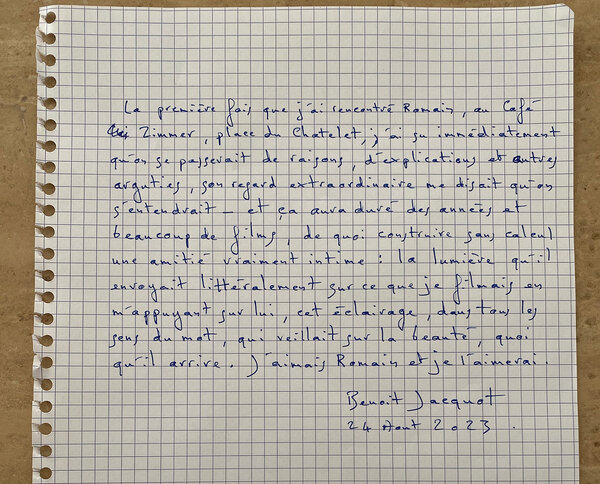 La première fois que j'ai rencontré Romain, au Café
Zimmer, place du Chatelet, j'ai su immédiatement
qu'on se passerait de raisons, d'explications et autres
arguties, son regard extraordinaire me disait qu'on
s'entendrait _ et ça aura duré des années et
beaucoup de films, de quoi construire sans calcul
une amitié vraiment intime : la lumière qu'il
envoyait littéralement sur ce que je filmais en
m'appuyant sur lui, cet éclairage, dans tous les
sens du mot, qui veillait sur la beauté, quoi
qu'il arrive. J'aimais Romain et je l'aimerai.
Benoit Jacquot
24 Aout 2023.